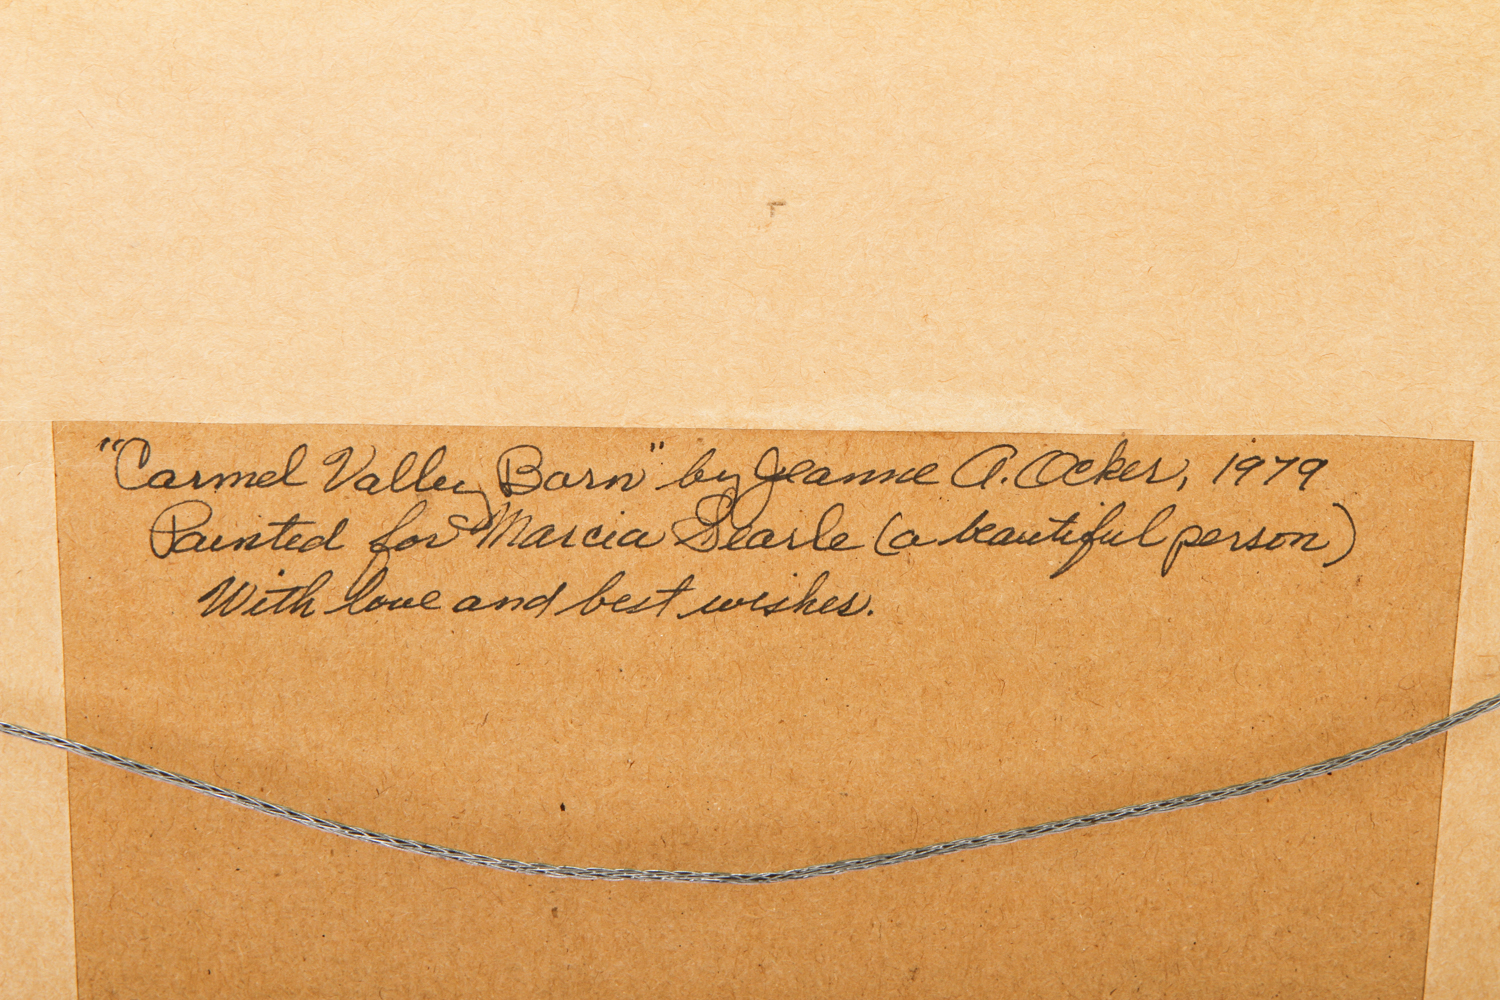 "Carmel Valley Barn" by Jeanne A. Ocker, 1979
Painted for Marcia Searle (a beautiful person)
With love and best wishes.